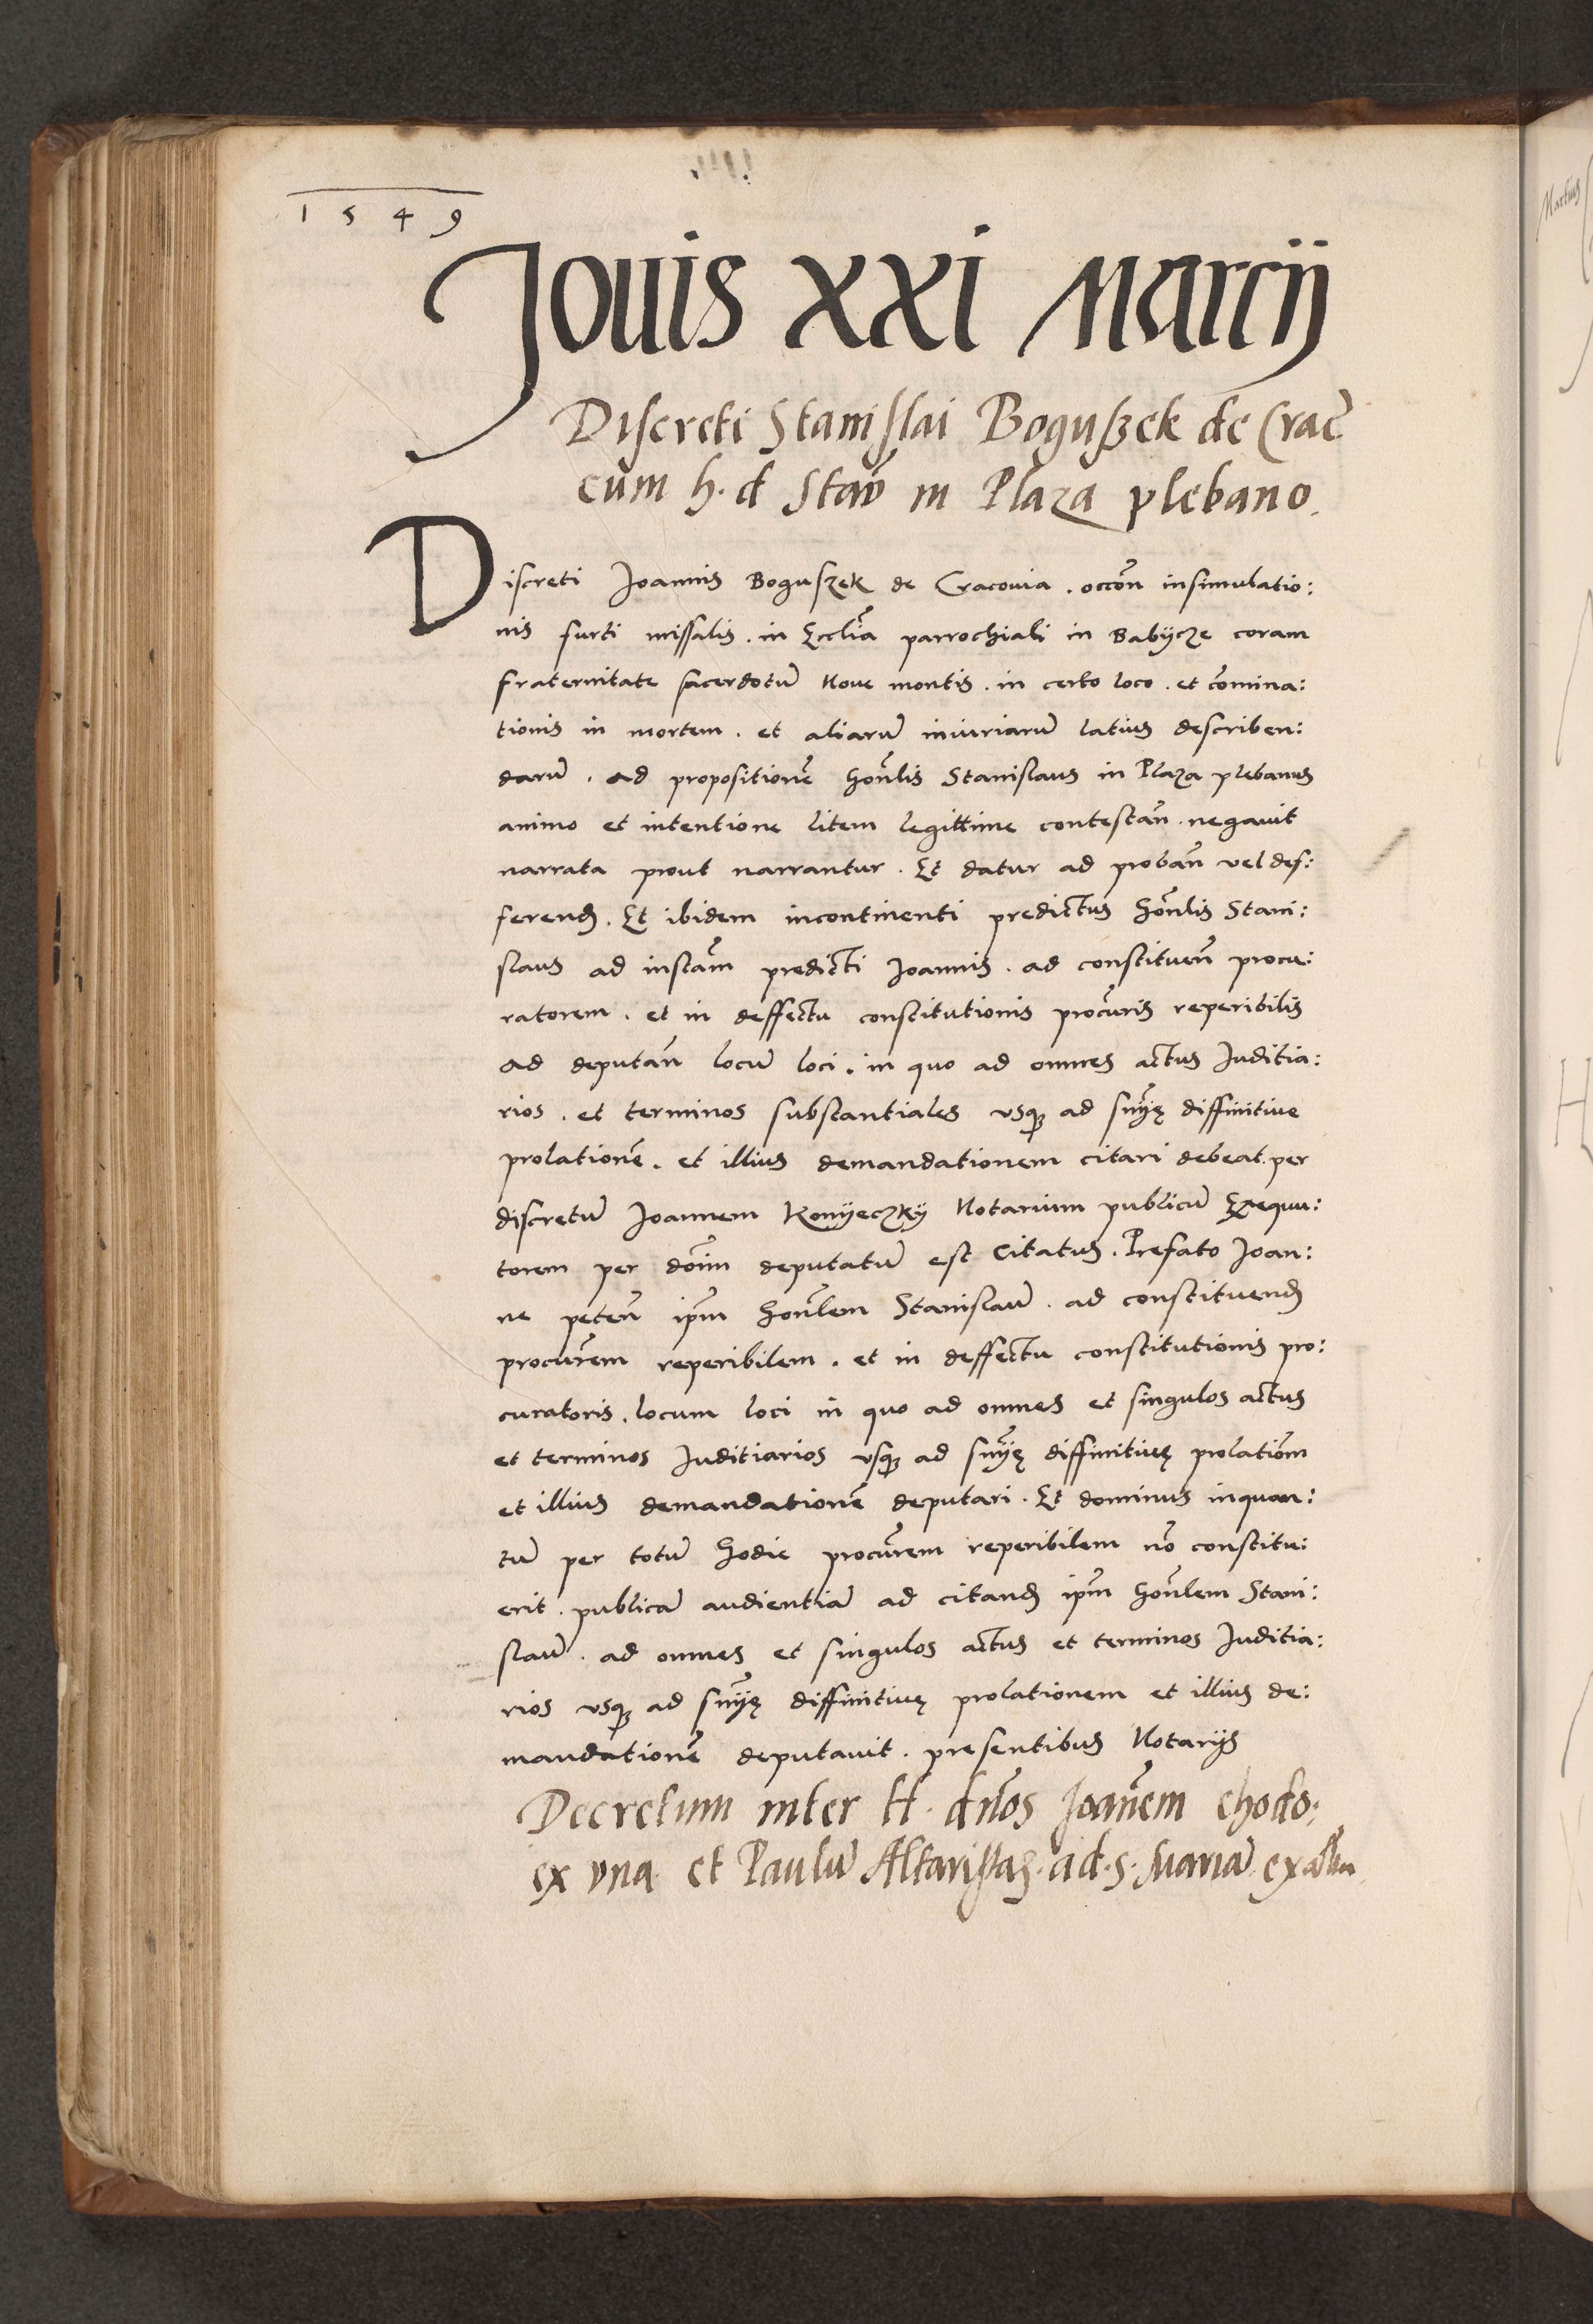 1549
Jouis XXI Marcij
Discreti Stanislai Bogußek de Crac̄
cum h. d Stan̄ in Plaza plebano.
Discreti Joannis Boguszek de Cracouia . occōn insimulatio:
nis furti missalis . in Ecclīa parrochiali in Babijcze coram
fraternitate sacerdotū Noue montis . in certo loco . et cōmina:
tionis in mortem . et aliarū iniuriarū latius describen:
darū . ad propositionē hon̄lis Stanislaus in Plaza plebanus
animo et intentione litem legittime contestan̄ . negauit
narrata prout narrantur . Et datur ad proban̄ vel def:
ferend̄ . Et ibidem incontinenti predictus hōnlis Stani:
slaus ad instām predicti Joannis . ad constituen̄ procu:
ratorem . et in deffectu constitutionis procūris reperibilis
ad deputan̄ locū loci . in quo ad omnes actus Juditia:
rios . et terminos substantiales vsq̨ ad sn̄iję diffinitiue
prolationē . et illius demandationem citari debeat . per
discretū Joannem Konijeczkij Notarium publicū Exequu:
torem per dōim deputatū est citatus . Prefato Joan:
ne peten̄ ip̄m hon̄lem Stanislaū . ad constituend̄
procūrem reperibilem . et in deffectu constitutionis pro:
curatoris . locum loci in quo ad omnes et singulos actus
et terminos Juditiarios vsq̨ ad sn̄iję diffinitiuę prolatiōm
et illius demandationē deputari . Et dominus inquan:
tū per totū hodie procūrem reperibilem nō constitu:
erit . publicā audientiā ad citand̄ ip̄m hon̄lem Stani:
slaū . ad omnes et singulos actus et terminos Juditia:
rios vsq̨ ad sn̄iję diffinitiuę prolationem et illius de:
mandationē deputauit . presentibus Notarijs
Decretum inter H. dn̄os Joan̄em chodo:
ex vna et Paulū Altaristas . ad . S. Mariā ex altera